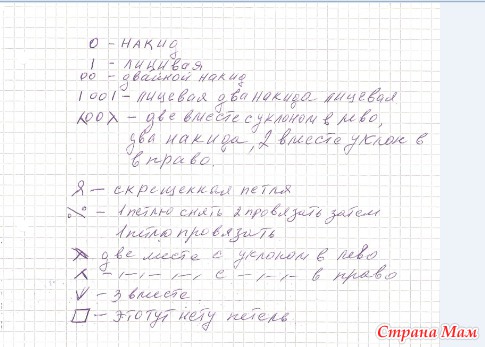 О - НАКИД
| - ЛИЦИВАЯ
ОО - двойной накид
| ОО | - лицевая два накида лицевая
ОО - две вместе с уклоном в лево,
два накида, 2 вместе уклон в
в право.
- скрещенная петля
- 1 петлю снять 2 провязать затем
1 петлю провязать
две месте с уклоном в лево
- -,-,-, с -,-,- в право
V - 3 вместе
□ - это тут нету петель
Страна Мам